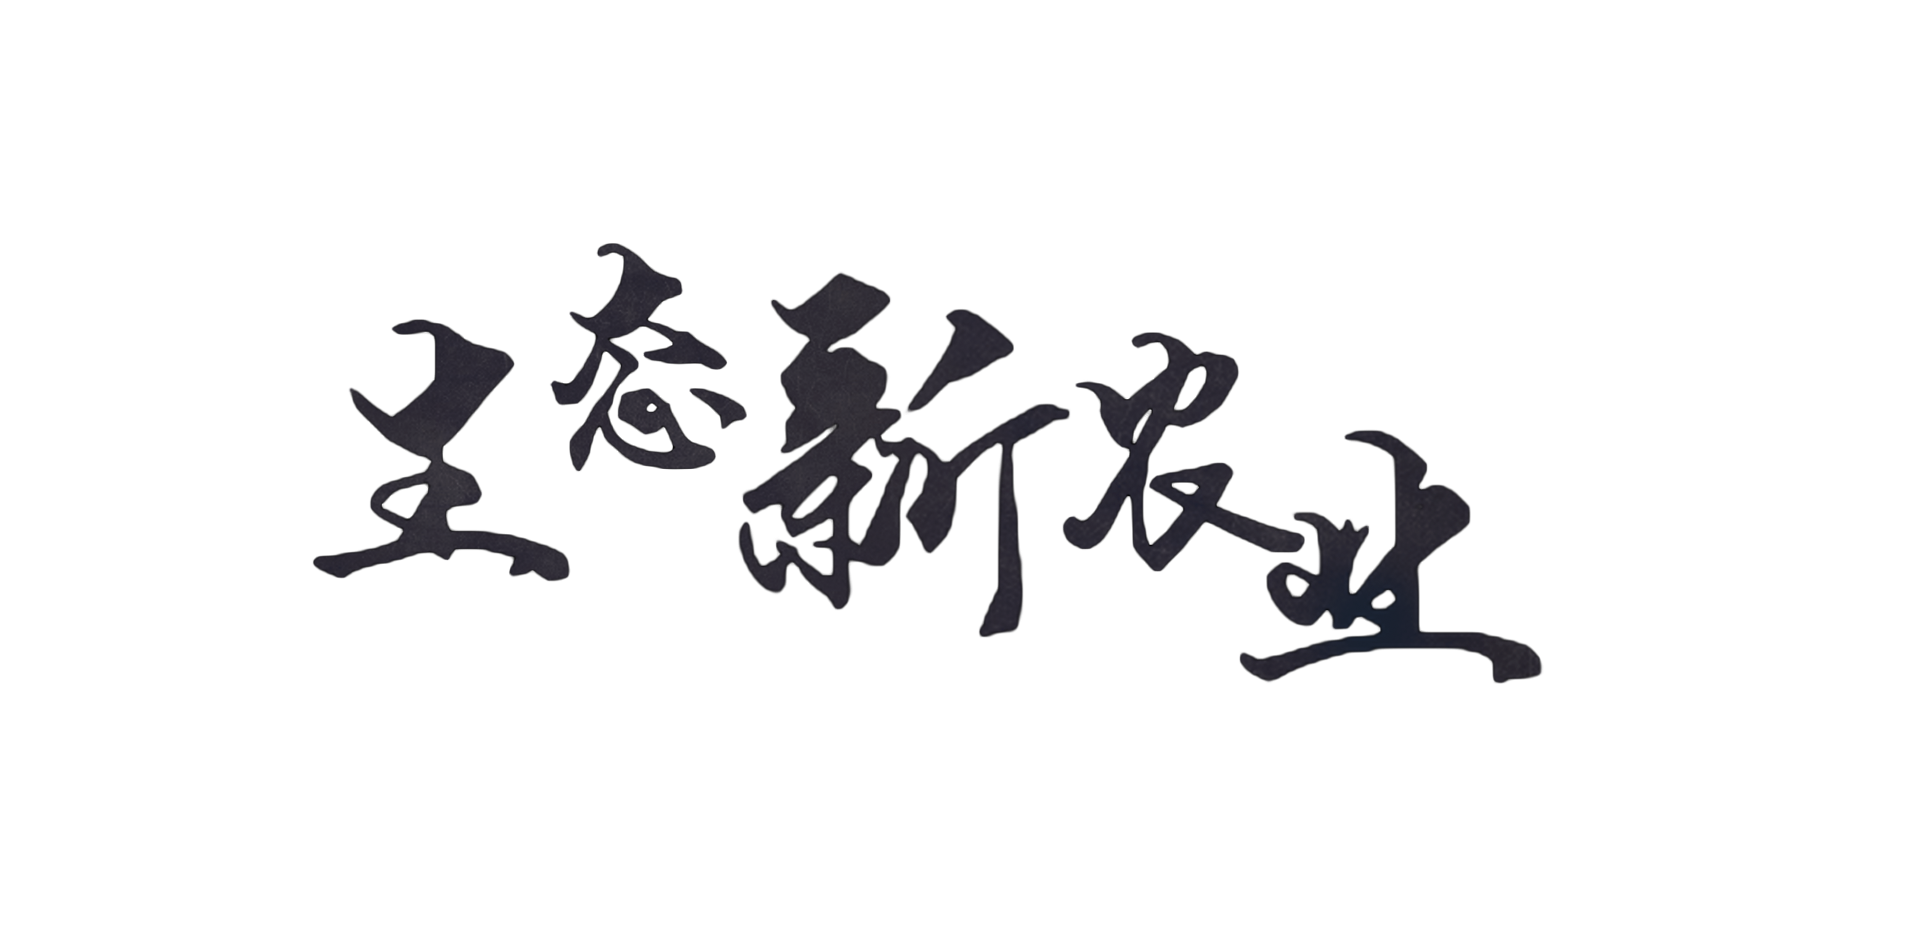 生态新农业